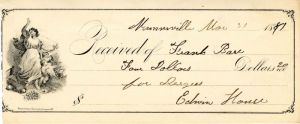 Munnsville Mar 21 1887
Received of Frank Barr
Four Dollars Dollars 20
for Dargees
$
Edwin House